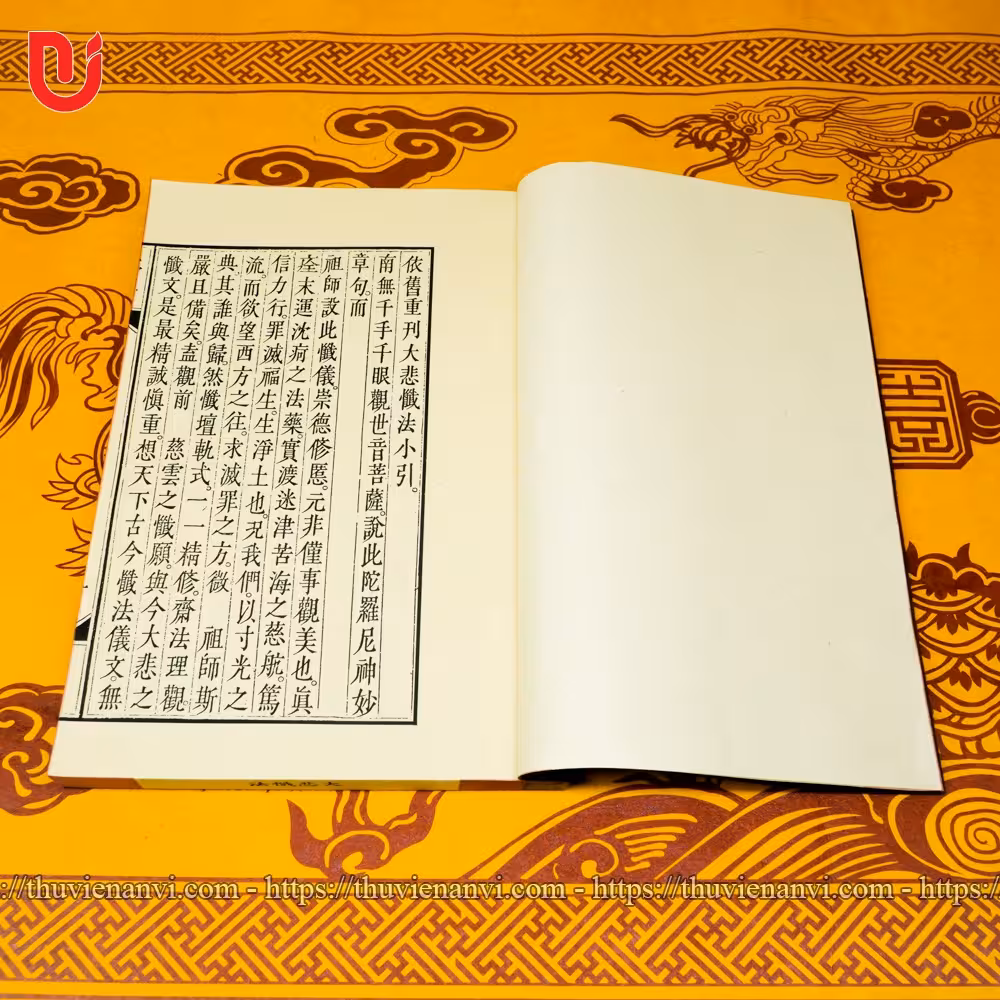 依舊重刊大悲懺法小引。
南無千手千眼觀世音菩薩。說此陀羅尼神妙
章句。而
祖師設此懺儀。崇德修慝。元非僅事觀美也。眞
痊末運沈疴之法藥。實渡迷津苦海之慈航。篤
信力行。罪滅福生。生淨土也。况我們。以寸光之
流。而欲望西方之往。求滅罪之方。微 祖師斯
典其誰與歸。然懺壇軌式。一一精修。齋法理觀。
嚴且備矣。盖觀前 慈雲之懺願。與今大悲之
懺文。是最精誠慎重。想天下古今懺法儀文。無
大悲懺法
s://thuvienanvi.com - https://thuvienanvi.com - https://thuvienanvi.com - https